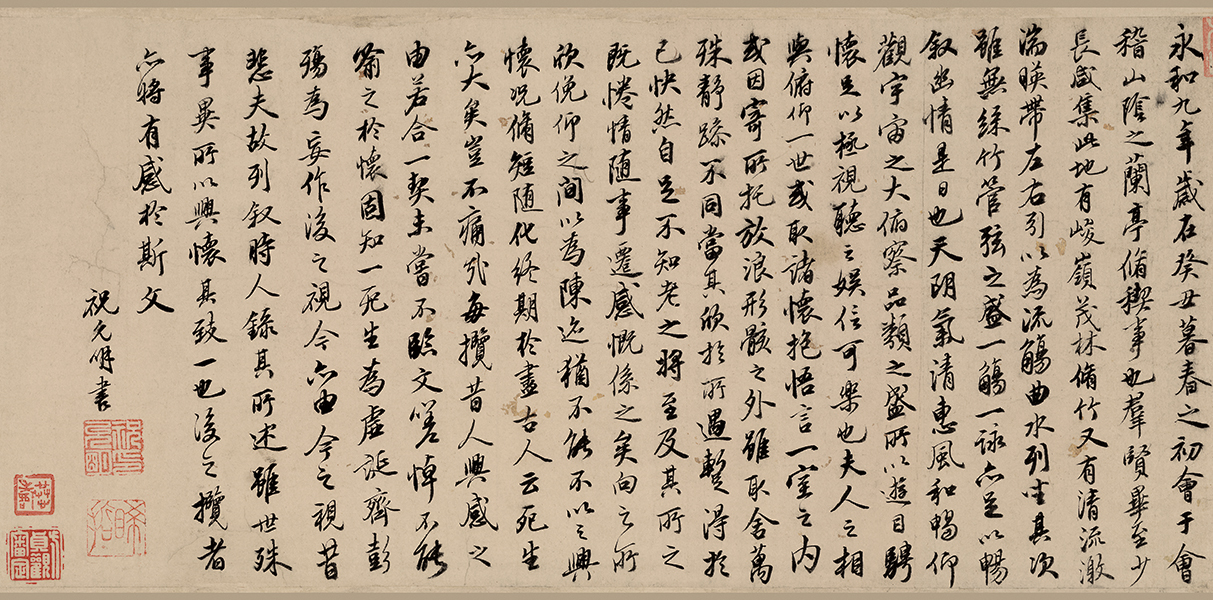 永和九年歲在癸丑暮春之初會于會
稽山陰之蘭亭脩稧事也羣賢畢至少
長咸集此地有峻嶺茂林脩竹又有清流激
湍暎帶左右引以為流觴曲水列坐其次
雖無絲竹管弦之盛一觴一詠亦足以暢
叙幽情是日也天朗氣清惠風和暢仰
觀宇宙之大俯察品類之盛所以遊目騁
懷足以極視聽之娛信可樂也夫人之相
與俯仰一世或取諸懷抱悟言一室之內
或因寄所托放浪形骸之外雖取舍萬
殊靜躁不同當其欣於所遇暫得於
己快然自足不知老之將至及其所之
既惓情随事遷感慨係之矣向之所
欣俛仰之間以為陳迹猶不能不以之興
懷況脩短随化終期於盡古人云死生
亦大矣豈不痛哉每攬昔人興感之
由若合一契未嘗不臨文嗟悼不能
喻之於懷固知一死生為虛誕齊彭
殤為妄作後之視今亦由今之視昔
悲夫故列叙時人錄其所述雖世殊
事異所以興懷其致一也後之攬者
亦將有感於斯文
祝允明書
祝允明印
希哲
貞觀